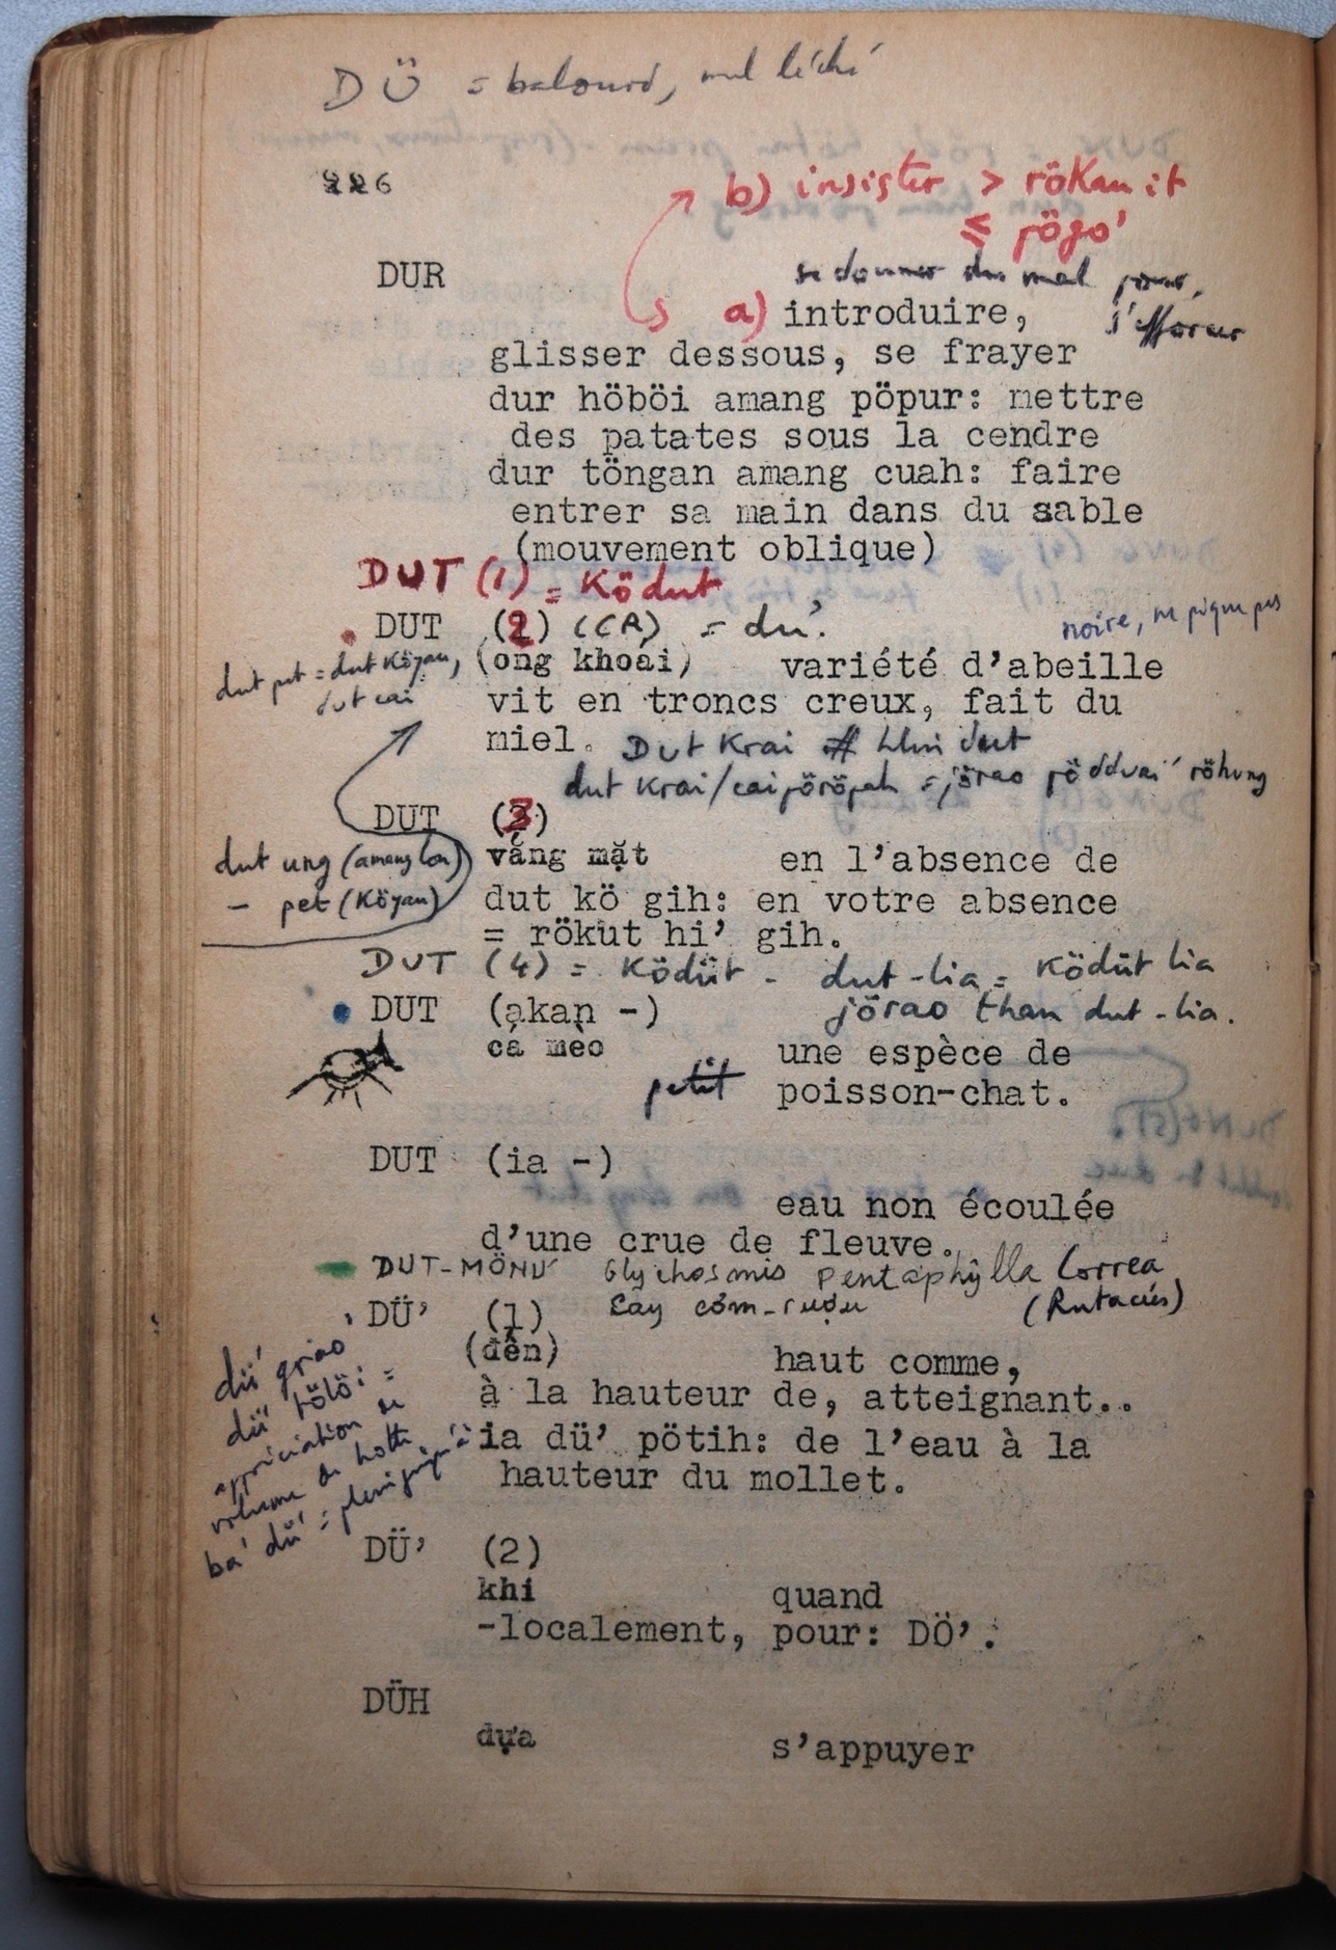 DÜ = balourd, mal léché
226
b) insister > rökan it
≤ pögo'
DUR
se donner du mal pour,
a) introduire, s'efforcer
glisser dessous, se frayer
dur höböi amang pöpur: mettre
des patates sous la cendre
dur töngan amang cuah: faire
entrer sa main dans du sable
(mouvement oblique)
DUT (1) = Ködut
DUT (2) (CR) = du'.
noire, ne pique pas
dut pet = dut Köyau,
dut cai
(ong khoái) variété d'abeille
vit en troncs creux, fait du
miel. Dut Krai # hlui dut
dut Krai/cai = jörao röhung
DUT (3)
dut ung (amang lon)
- pet (Köyau)
vắng mặt en l'absence de
dut kö gih: en votre absence
= rökut hi' gih.
DUT (4) = Ködüt - dut-lia = Ködüt lia
jörao than dut-lia.
DUT (akan -)
cá mèo une espèce de
petit poisson-chat.
DUT (ia -)
eau non écoulée
d'une crue de fleuve.
DUT-MÖNU' Glychosmis pentaphylla Correa
Cây cơm-rượu (Rutacées)
DÜ' (1)
(đến) haut comme,
à la hauteur de, atteignant..
ia dü' pötih: de l'eau à la
hauteur du mollet.
dü' griao
dü' tölöi =
appréciation du
volume de hotte
ba' dü' = plein jusqu'à
DÜ' (2)
khi quand
-localement, pour: DÖ'.
DÜH
dựa s'appuyer